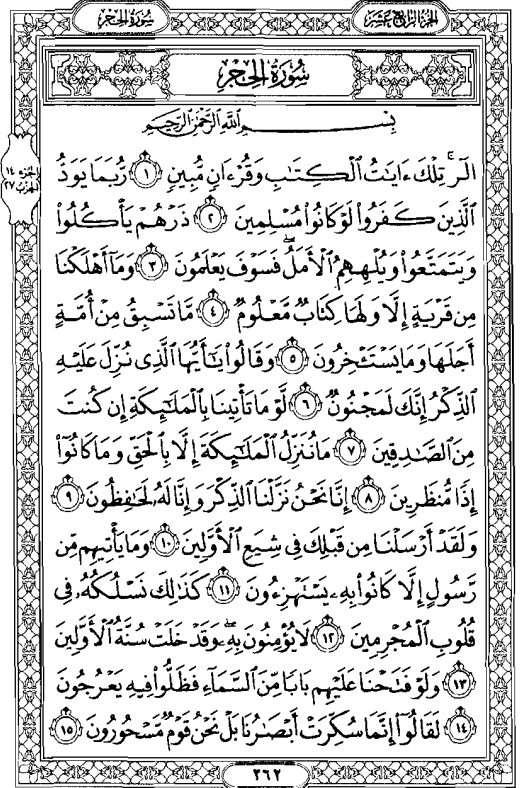 سُورَةُ الحِجْرِ
الجزء الرابع عشر
سُورَةُ الحِجْرِ
بِسْمِ ٱللَّهِ ٱلرَّحْمَٰنِ ٱلرَّحِيمِ
الجزء ١٤
الحزب ٢٧
الٓرۚ تِلْكَ ءَايَٰتُ ٱلْكِتَٰبِ وَقُرْءَانٍ مُّبِينٍ ١ رُّبَمَا يَوَدُّ
ٱلَّذِينَ كَفَرُوا۟ لَوْ كَانُوا۟ مُسْلِمِينَ ٢ ذَرْهُمْ يَأْكُلُوا۟
وَيَتَمَتَّعُوا۟ وَيُلْهِهِمُ ٱلْأَمَلُۖ فَسَوْفَ يَعْلَمُونَ ٣ وَمَآ أَهْلَكْنَا
مِن قَرْيَةٍ إِلَّا وَلَهَا كِتَابٌ مَّعْلُومٌ ٤ مَّا تَسْبِقُ مِنْ أُمَّةٍ
أَجَلَهَا وَمَا يَسْتَـْٔخِرُونَ ٥ وَقَالُوا۟ يَٰٓأَيُّهَا ٱلَّذِى نُزِّلَ عَلَيْهِ
ٱلذِّكْرُ إِنَّكَ لَمَجْنُونٌ ٦ لَّوْ مَا تَأْتِينَا بِٱلْمَلَٰٓئِكَةِ إِن كُنتَ
مِنَ ٱلصَّٰدِقِينَ ٧ مَا نُنَزِّلُ ٱلْمَلَٰٓئِكَةَ إِلَّا بِٱلْحَقِّ وَمَا كَانُوٓا۟
إِذًا مُّنظَرِينَ ٨ إِنَّا نَحْنُ نَزَّلْنَا ٱلذِّكْرَ وَإِنَّا لَهُۥ لَحَٰفِظُونَ ٩
وَلَقَدْ أَرْسَلْنَا مِن قَبْلِكَ فِى شِيَعِ ٱلْأَوَّلِينَ ١٠ وَمَا يَأْتِيهِم مِّن
رَّسُولٍ إِلَّا كَانُوا۟ بِهِۦ يَسْتَهْزِءُونَ ١١ كَذَٰلِكَ نَسْلُكُهُۥ فِى
قُلُوبِ ٱلْمُجْرِمِينَ ١٢ لَا يُؤْمِنُونَ بِهِۦۖ وَقَدْ خَلَتْ سُنَّةُ ٱلْأَوَّلِينَ
١٣ وَلَوْ فَتَحْنَا عَلَيْهِم بَابًا مِّنَ ٱلسَّمَآءِ فَظَلُّوا۟ فِيهِ يَعْرُجُونَ
١٤ لَقَالُوٓا۟ إِنَّمَا سُكِّرَتْ أَبْصَٰرُنَا بَلْ نَحْنُ قَوْمٌ مَّسْحُورُونَ ١٥
٢٦٢